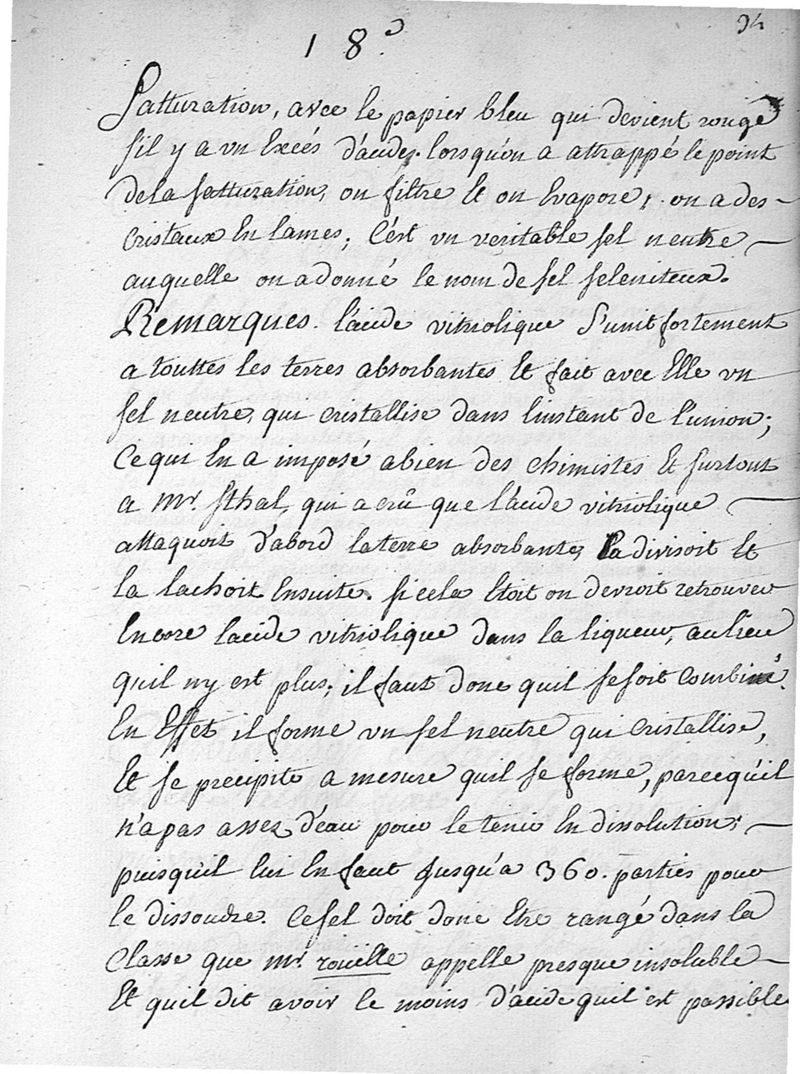 18e
94
Satturation, avec le papier bleu qui devient rougé
s'il y a un Excés d'acide. lorsqu'on a attrappé le point
de la satturation, on filtre Et on Evapore, on a des
cristaux En lames, C'est un veritable sel neutre
auquelle on a donné le nom de sel seleniteux.
Remarques. l'acide vitriolique S'unit fortement
a touttes les terres absorbantes Et fait avec Elle un
sel neutre, qui cristallise dans l'instant de l'union;
Ce qui En a imposé a bien des chimistes Et surtout
a mr. Sthal, qui a crû que l'acide vitriolique
attaquoit d'abord la terre absorbante, La divisoit Et
la lachoit Ensuite. si cela Etoit on devroit retrouver
Encore lacide vitriolique dans la liqueur, au lieu
quil ny est plus, il faut donc quil se soit Combiné.
En Effet il forme un sel neutre qui cristallise,
Et se precipite a mesure quil se forme, parcequ'il
n'a pas assez d'eau pour le tenir En dissolution;
puisqu'il lui En faut Jusqu'a 360. parties pour
le dissoudre. Ce sel doit donc Etre rangé dans la
Classe que mr. roüelle appelle presque insoluble
Et quil dit avoir le moins d'acide quil est possible